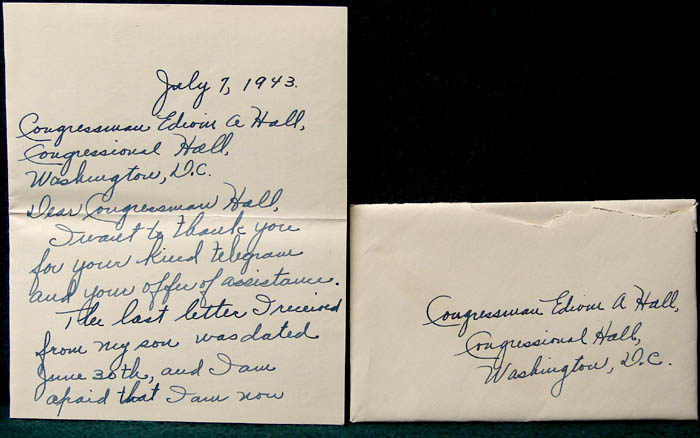 July 7, 1943.
Congressman Edwin A Hall,
Congressional Hall,
Washington, D.C.
Dear Congressman Hall,
I want to thank you
for your kind telegram
and your offer of assistance.
The last letter I received
from my son was dated
June 30th, and I am
afraid that I am now
Congressman Edwin A Hall,
Congressional Hall,
Washington, D.C.